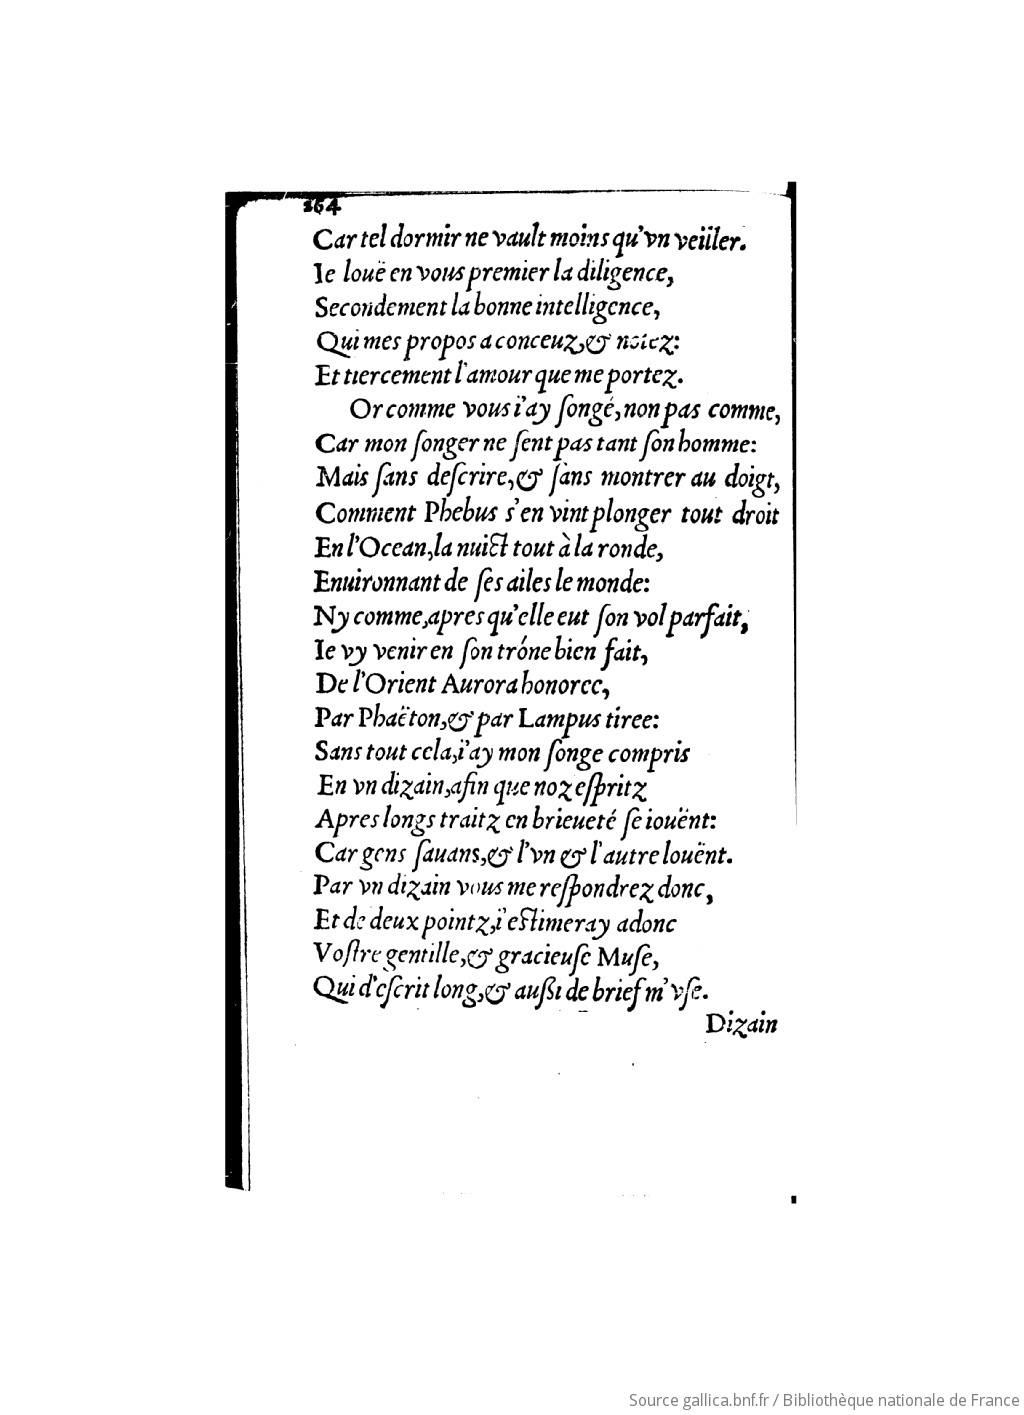 264
Car tel dormir ne vault moins qu'vn veiller.
Ie louë en vous premier la diligence,
Secondement la bonne intelligence,
Qui mes propos a conceuz,& notez:
Et tiercement l'amour que me portez.
Or comme vous i'ay ſongé,non pas comme,
Car mon ſonger ne ſent pas tant ſon homme:
Mais ſans deſcrire,& ſans montrer au doigt,
Comment Phebus s'en vint plonger tout droit
En l'Ocean,la nuict tout à la ronde,
Enuironnant de ſes ailes le monde:
Ny comme,apres qu'elle eut ſon vol parfait,
Ie vy venir en ſon tróne bien fait,
De l'Orient Aurora honoree,
Par Phaëton,& par Lampus tiree:
Sans tout cela,i'ay mon ſonge compris
En vn dizain,afin que noz eſpritz
Apres longs traitz en brieueté ſe iouënt:
Car gens ſauans,& l'vn & l'autre louënt.
Par vn dizain vous me reſpondrez donc,
Et de deux pointz,i'eſtimeray adonc
Voſtre gentille,& gracieuſe Muſe,
Qui d'eſcrit long,& außi de brief m'vſe.
Dizain
Source gallica.bnf.fr / Bibliothèque nationale de France